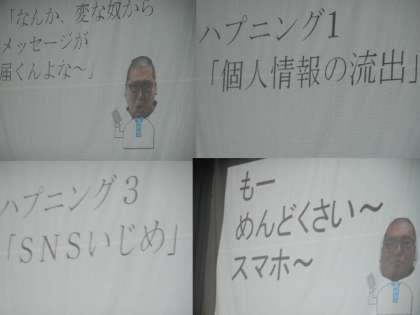 「なんか、変な奴から
メッセージが
届くんよな～」
ハプニング1
「個人情報の流出」
ハプニング3
「SNSいじめ」
もー
めんどくさい～
スマホ～